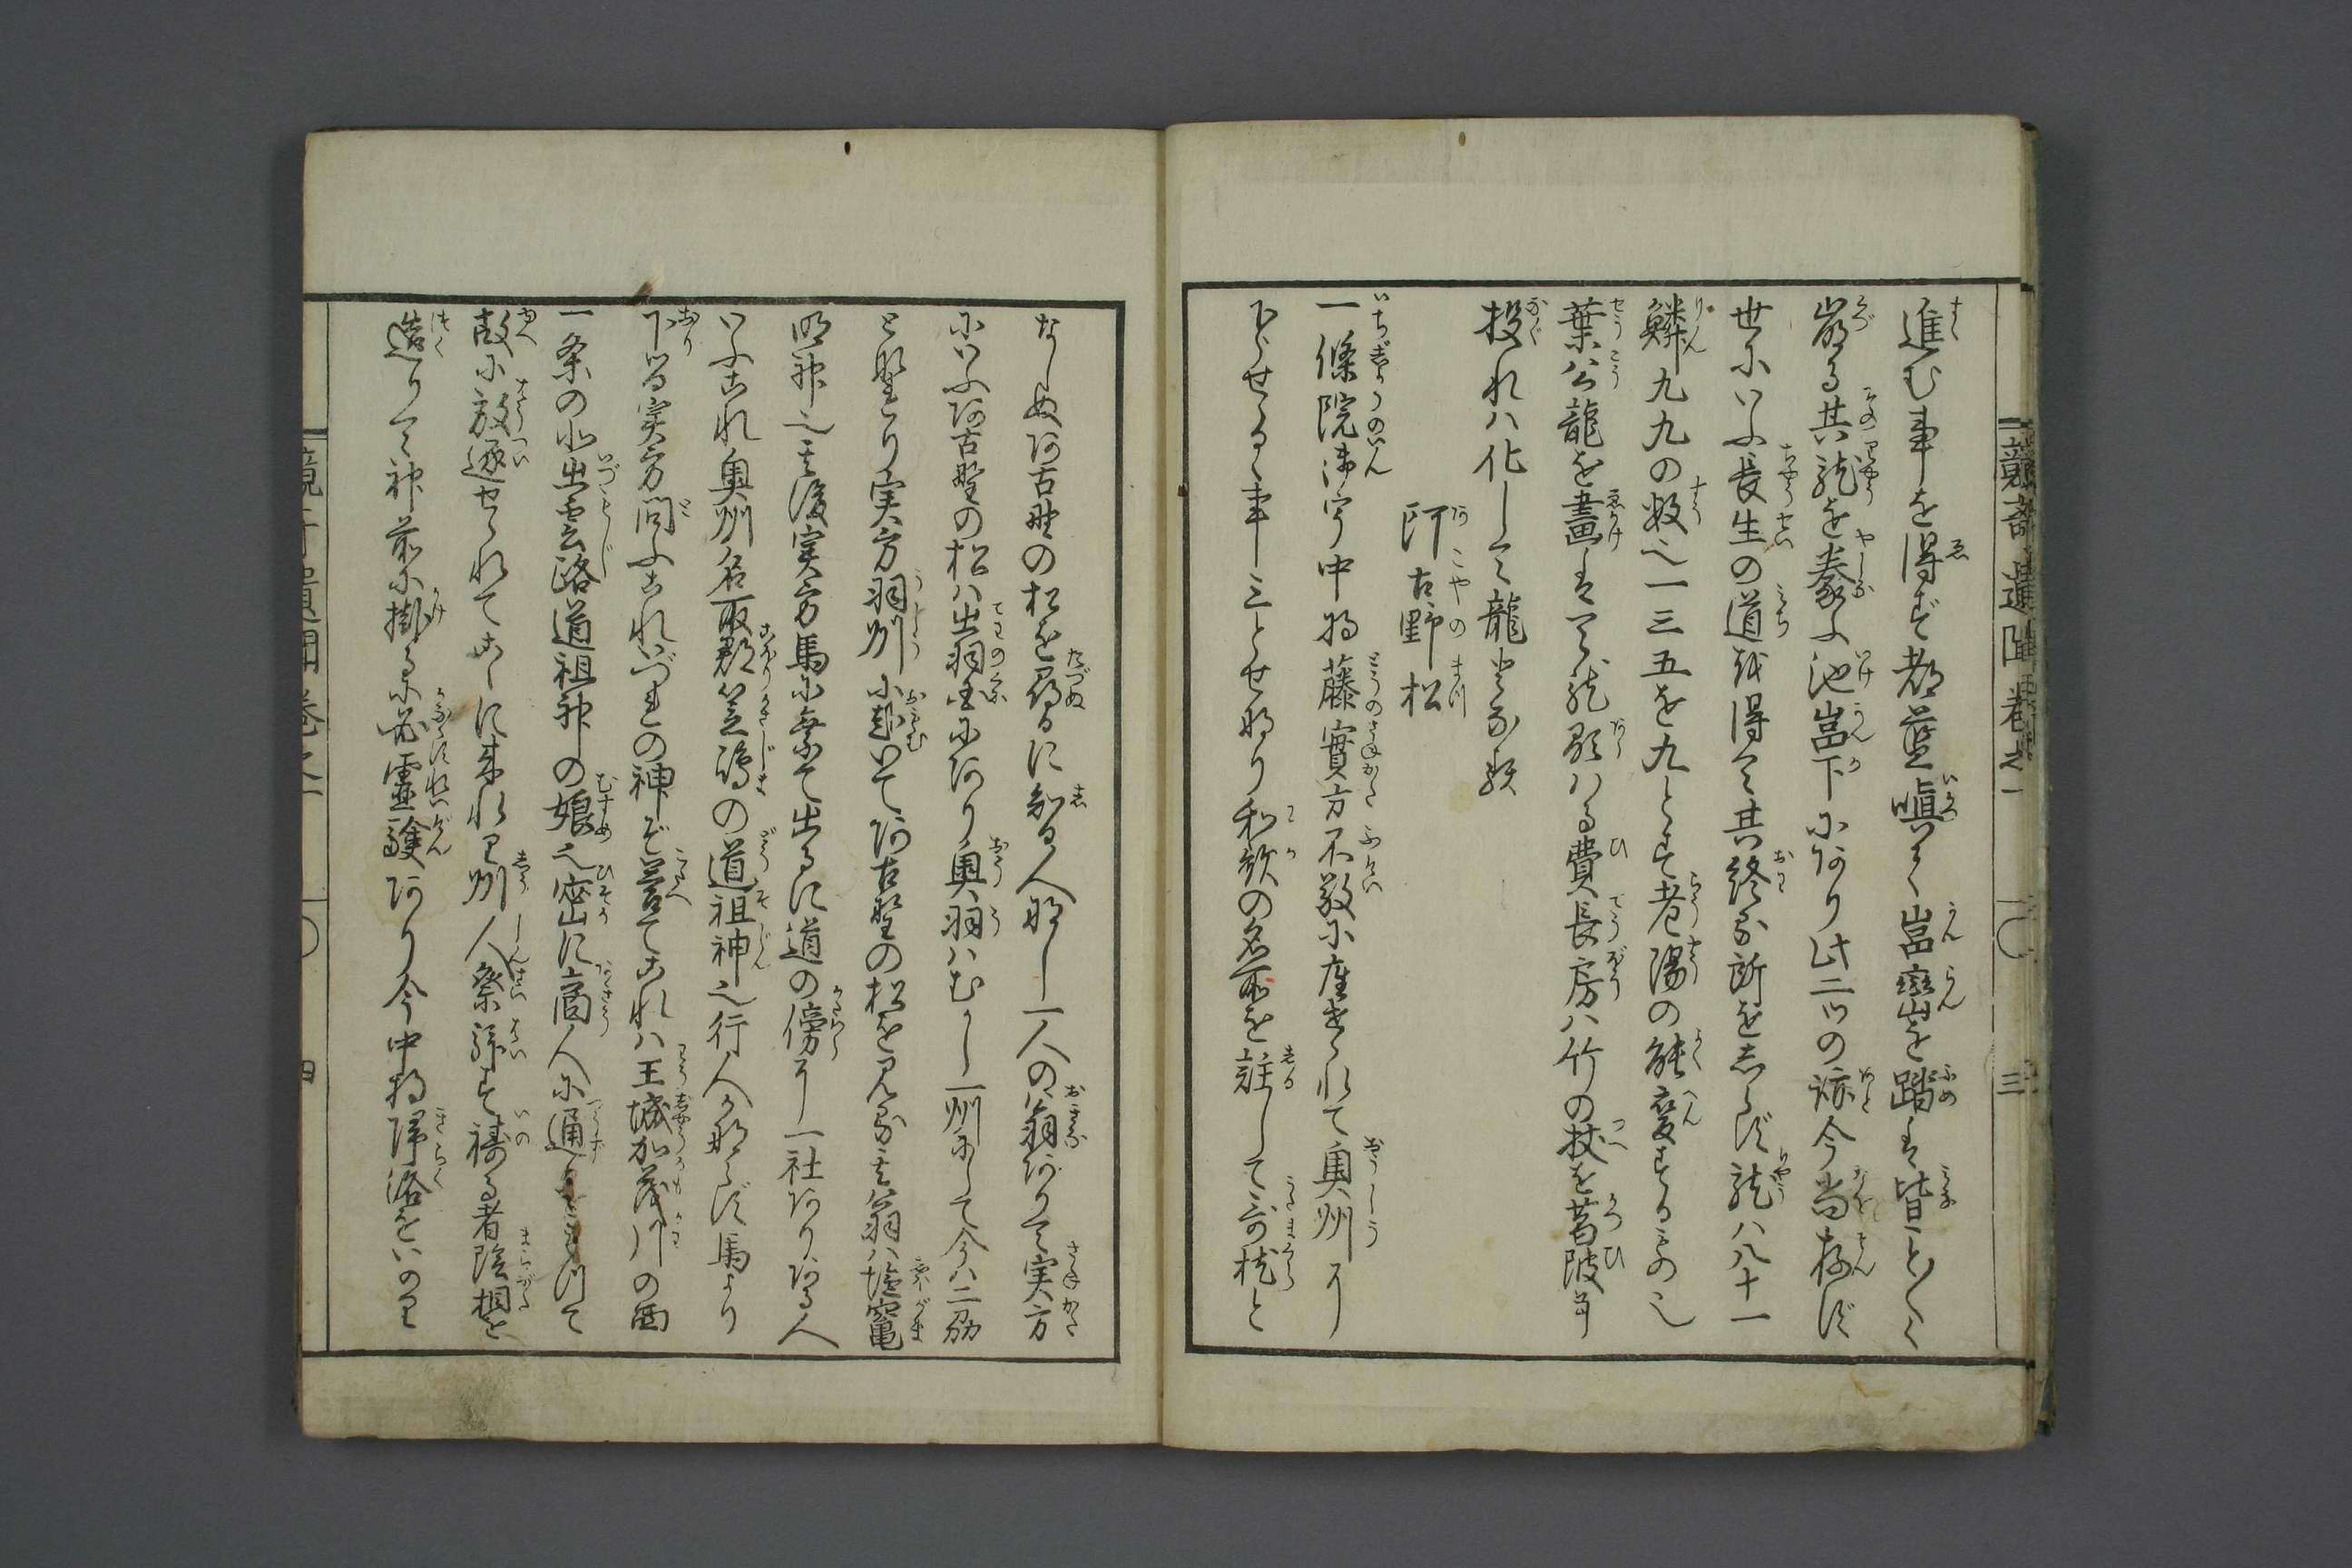 進む事を得ず都藍嗔て嵓巒を踏は皆こと〳〵く
崩る其龍を豢ふ池嵓下にあり此二ツの跡今尚存ず
世にいふ長生の道を得て其終る所をしらず龍ハ八十一
鱗九九の数也一三五を九とす老陽の能変するもの也
葉公龍を畫ハ龍顕ハる費長房ハ竹の杖を葛陂に
投れハ化して龍となる
阿古野松
一條院御宇中将藤實方不敬に座せられて奥州に
下らせるゝ事三とせなり和歌の名所を註して哥枕と
なしぬ阿古野の松を尋るに知る人なし一人の翁ありて実方
にいふ阿古野の松ハ出羽国にあり奥羽ハむかし一州にして今ハ二分
と野たり実方羽州に趣いて阿古野の松を見る其翁ハ塩竈
明神也其後実方馬に乗て出るに道の傍に一社あり或人
いふこれ奥州名取郡笠嶋の道祖神也行人かならず馬より
下る実方問ふこれいづれの神ぞ答てこれハ王城加茂川の西
一条の北出雲路道祖神の娘也密に商人に通
故に放逐せられてこゝに来れり州人祭祀す祷る者陰相を
造りて神前に掛るに必霊験あり今中将帰洛をいのり